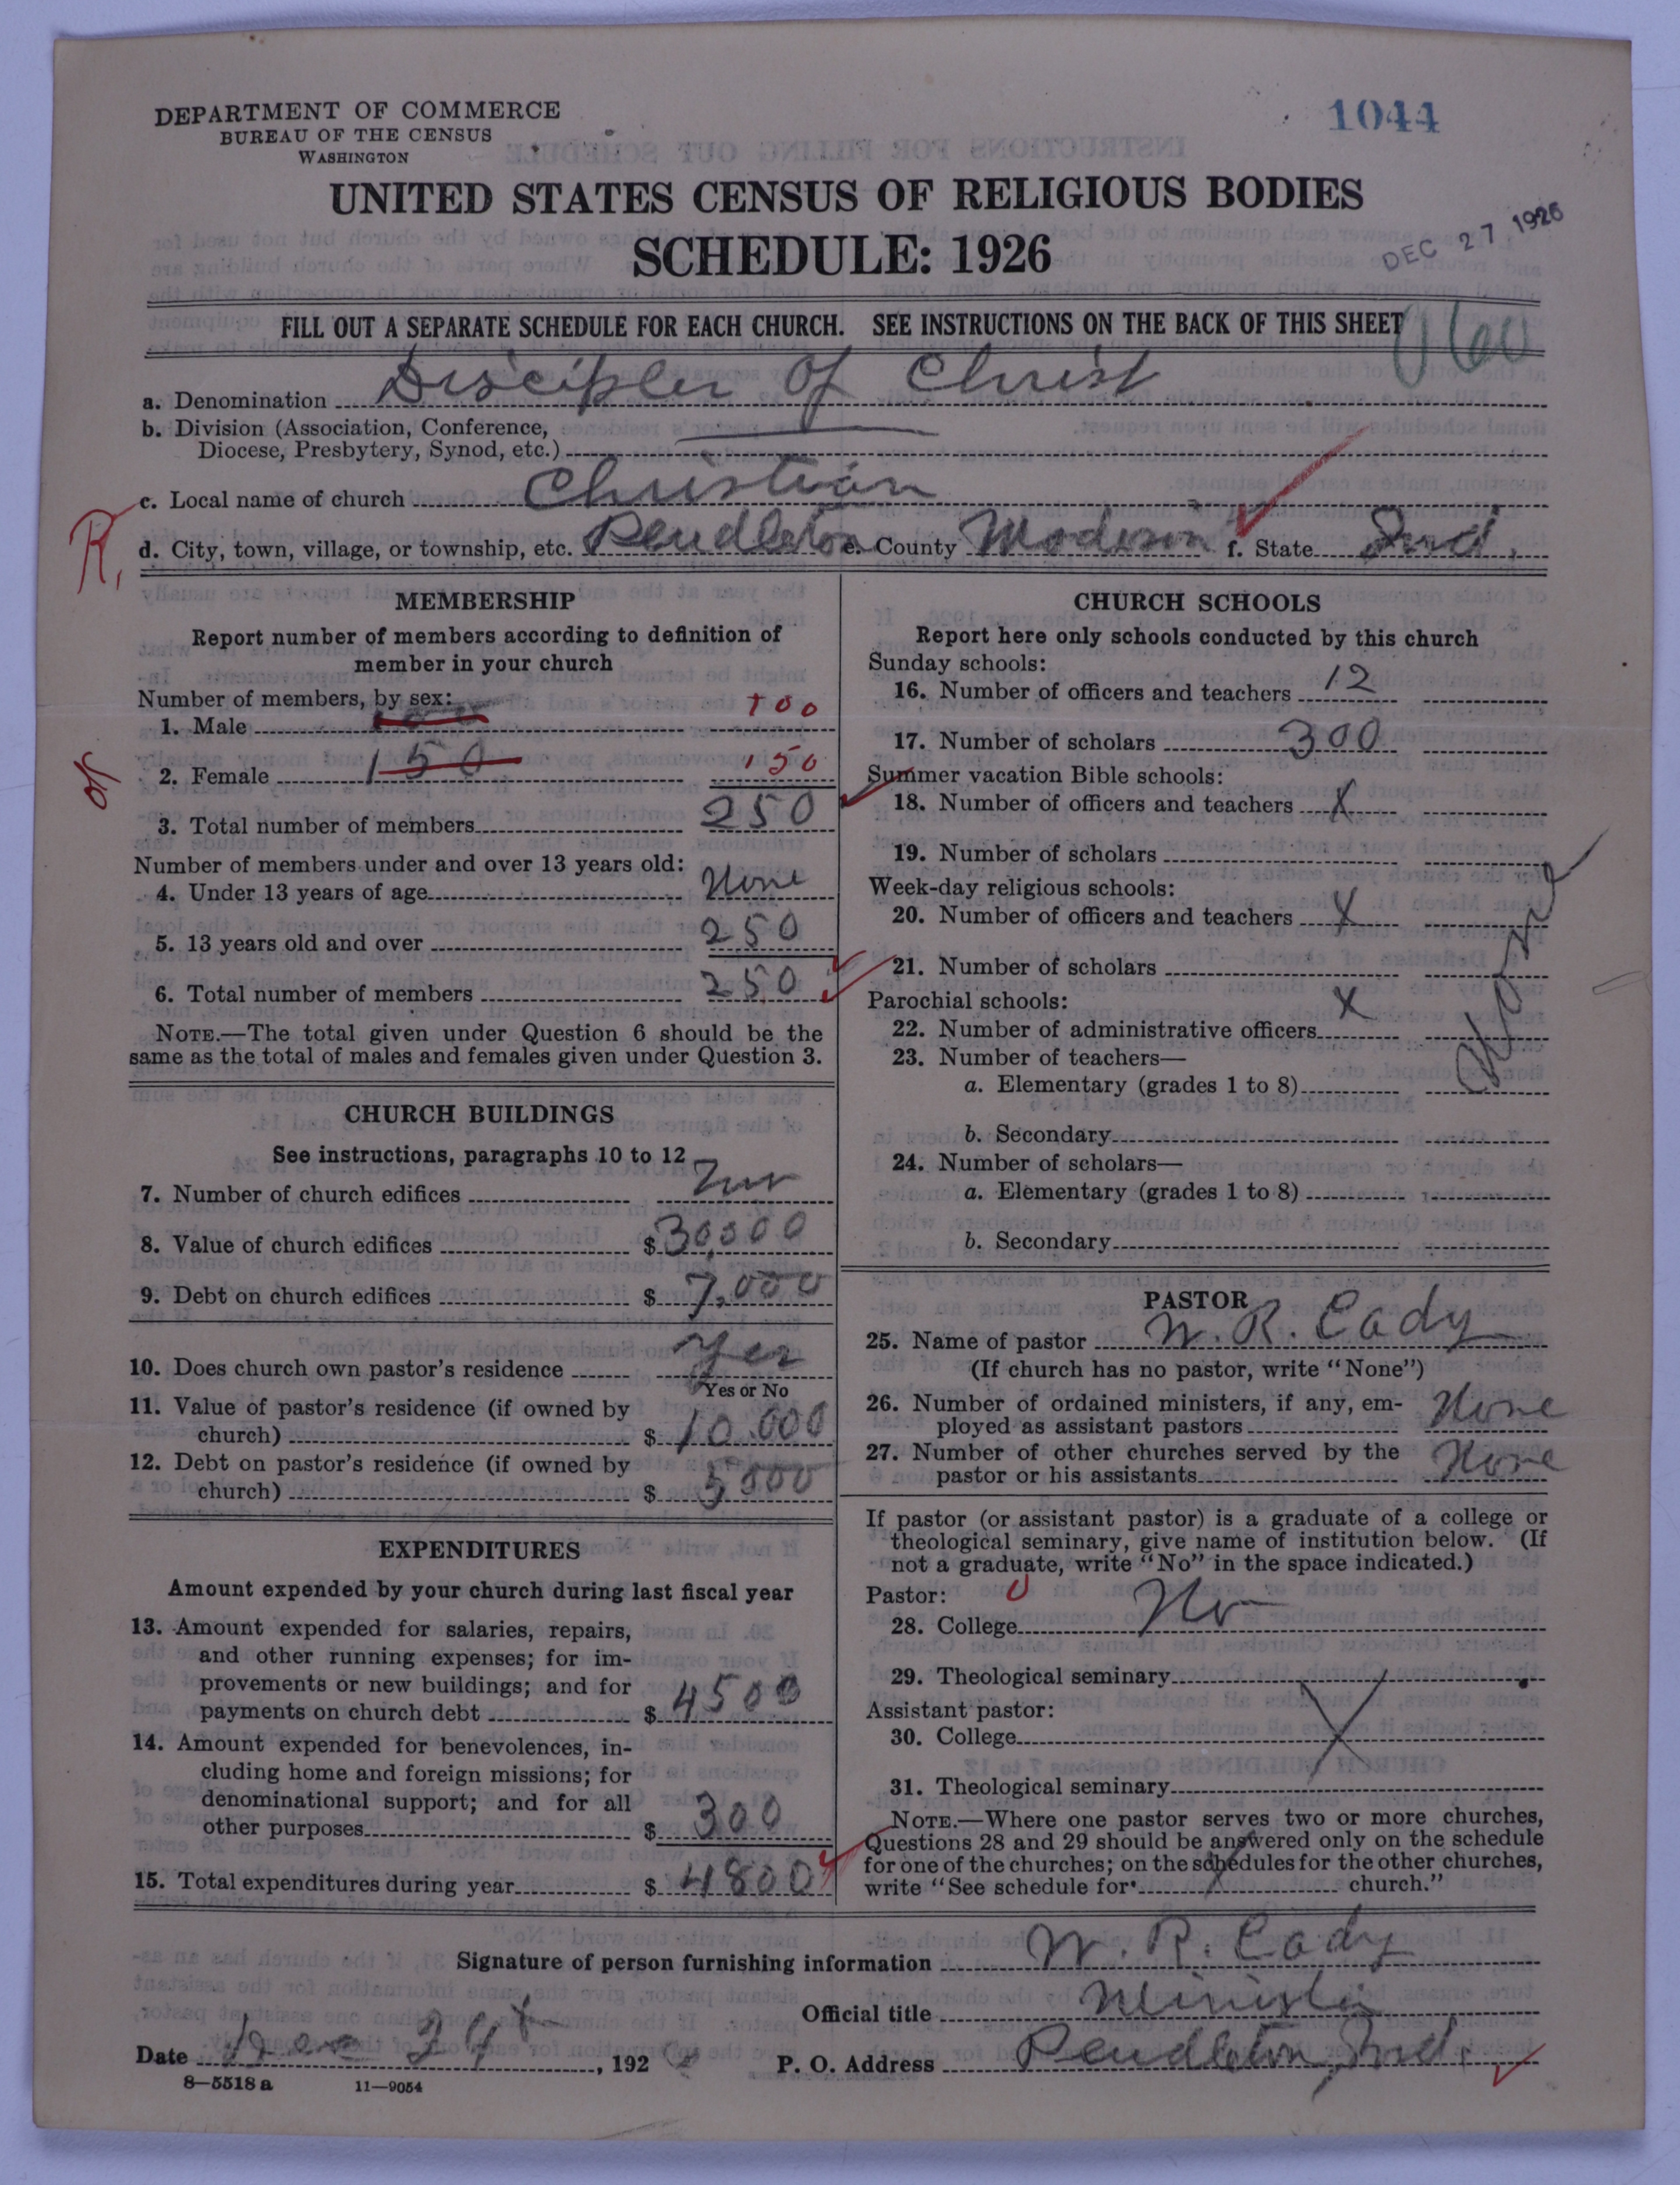 DEPARTMENT OF COMMERCE
BUREAU OF THE CENSUS
WASHINGTON
1044
UNITED STATES CENSUS OF RELIGIOUS BODIES
SCHEDULE: 1926
DEC 27 1926
FILL OUT A SEPARATE SCHEDULE FOR EACH CHURCH. SEE INSTRUCTIONS ON THE BACK OF THIS SHEET
a. Denomination Disciples Of Christ
b. Division (Association, Conference,
Diocese, Presbytery, Synod, etc.)
c. Local name of church Christian
R,
d. City, town, village, or township, etc. Pendleton e. County Madison f. State Ind.
MEMBERSHIP
Report number of members according to definition of
member in your church
Number of members, by sex:
1. Male 100 100
2. Female 150 150
ok
3. Total number of members 250
Number of members under and over 13 years old:
4. Under 13 years of age None
5. 13 years old and over 250
6. Total number of members 250
NOTE.—The total given under Question 6 should be the
same as the total of males and females given under Question 3.
CHURCH BUILDINGS
See instructions, paragraphs 10 to 12
7. Number of church edifices
8. Value of church edifices $ 30,000
9. Debt on church edifices $ 7,000
10. Does church own pastor's residence Yes
Yes or No
11. Value of pastor's residence (if owned by
church) $ 10.000
12. Debt on pastor's residence (if owned by
church) $ 5000
EXPENDITURES
Amount expended by your church during last fiscal year
13. Amount expended for salaries, repairs,
and other running expenses; for im-
provements or new buildings; and for
payments on church debt $ 4500
14. Amount expended for benevolences, in-
cluding home and foreign missions; for
denominational support; and for all
other purposes $ 300
15. Total expenditures during year $ 4800
CHURCH SCHOOLS
Report here only schools conducted by this church
Sunday schools:
16. Number of officers and teachers 12
17. Number of scholars 300
Summer vacation Bible schools:
18. Number of officers and teachers X
19. Number of scholars
Week-day religious schools:
20. Number of officers and teachers X
21. Number of scholars
Parochial schools: X
22. Number of administrative officers
23. Number of teachers—
a. Elementary (grades 1 to 8)
b. Secondary
24. Number of scholars—
a. Elementary (grades 1 to 8)
b. Secondary
PASTOR
25. Name of pastor W. R. Cady
(If church has no pastor, write "None")
26. Number of ordained ministers, if any, em-
ployed as assistant pastors None
27. Number of other churches served by the
pastor or his assistants None
If pastor (or assistant pastor) is a graduate of a college or
theological seminary, give name of institution below. (If
not a graduate, write "No" in the space indicated.)
Pastor:
28. College No
29. Theological seminary
Assistant pastor:
30. College X
31. Theological seminary
NOTE.—Where one pastor serves two or more churches,
Questions 28 and 29 should be answered only on the schedule
for one of the churches; on the schedules for the other churches,
write "See schedule for X church."
Signature of person furnishing information W. R. Cady
Official title Minister
Date Dec 24, 192
P. O. Address Pendleton, Ind.
8—5518 a 11—9054